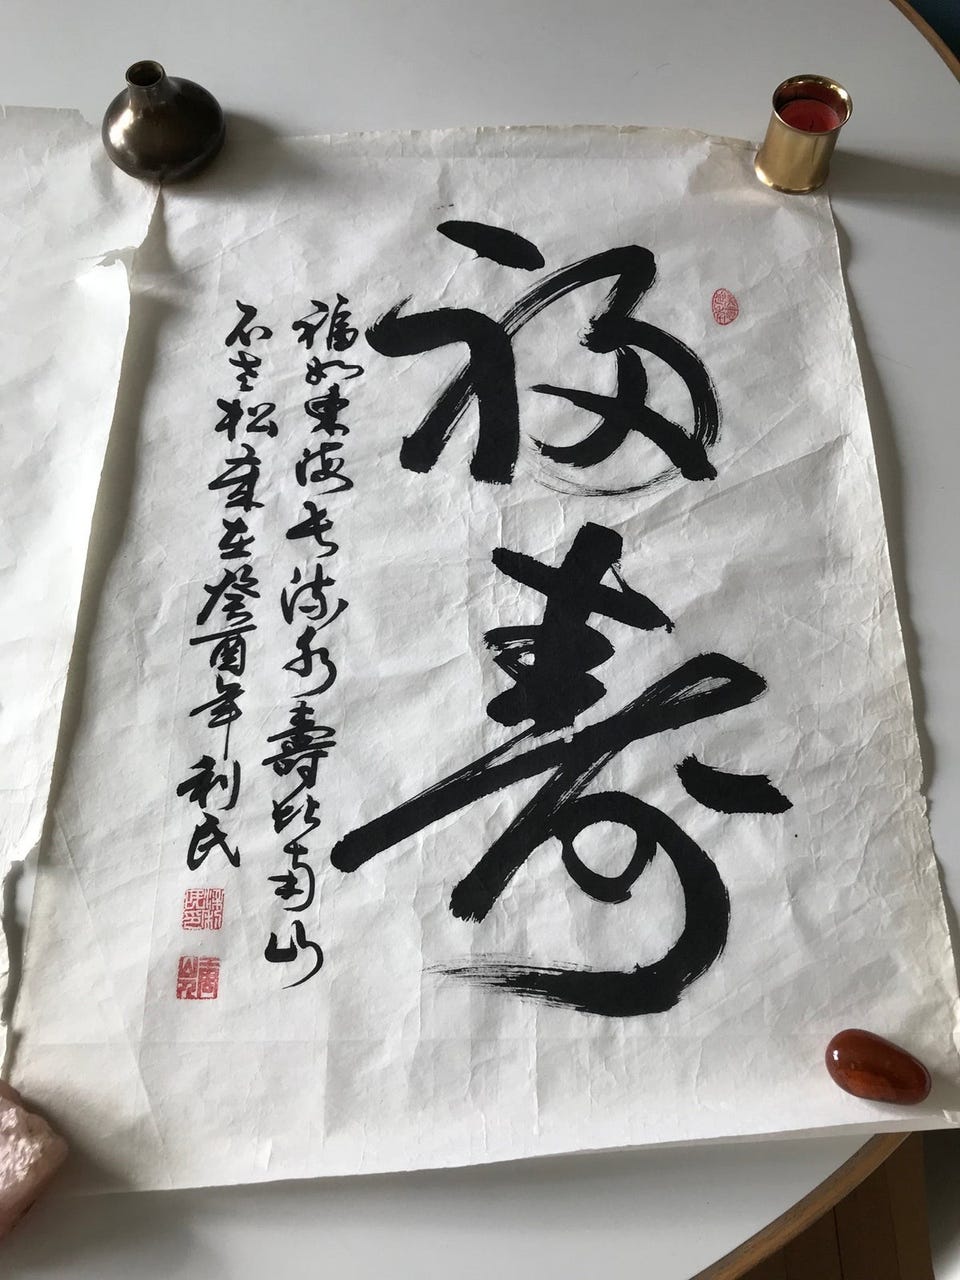 福寿
福如東海长流水壽比南山
不老松歲在癸酉年利民